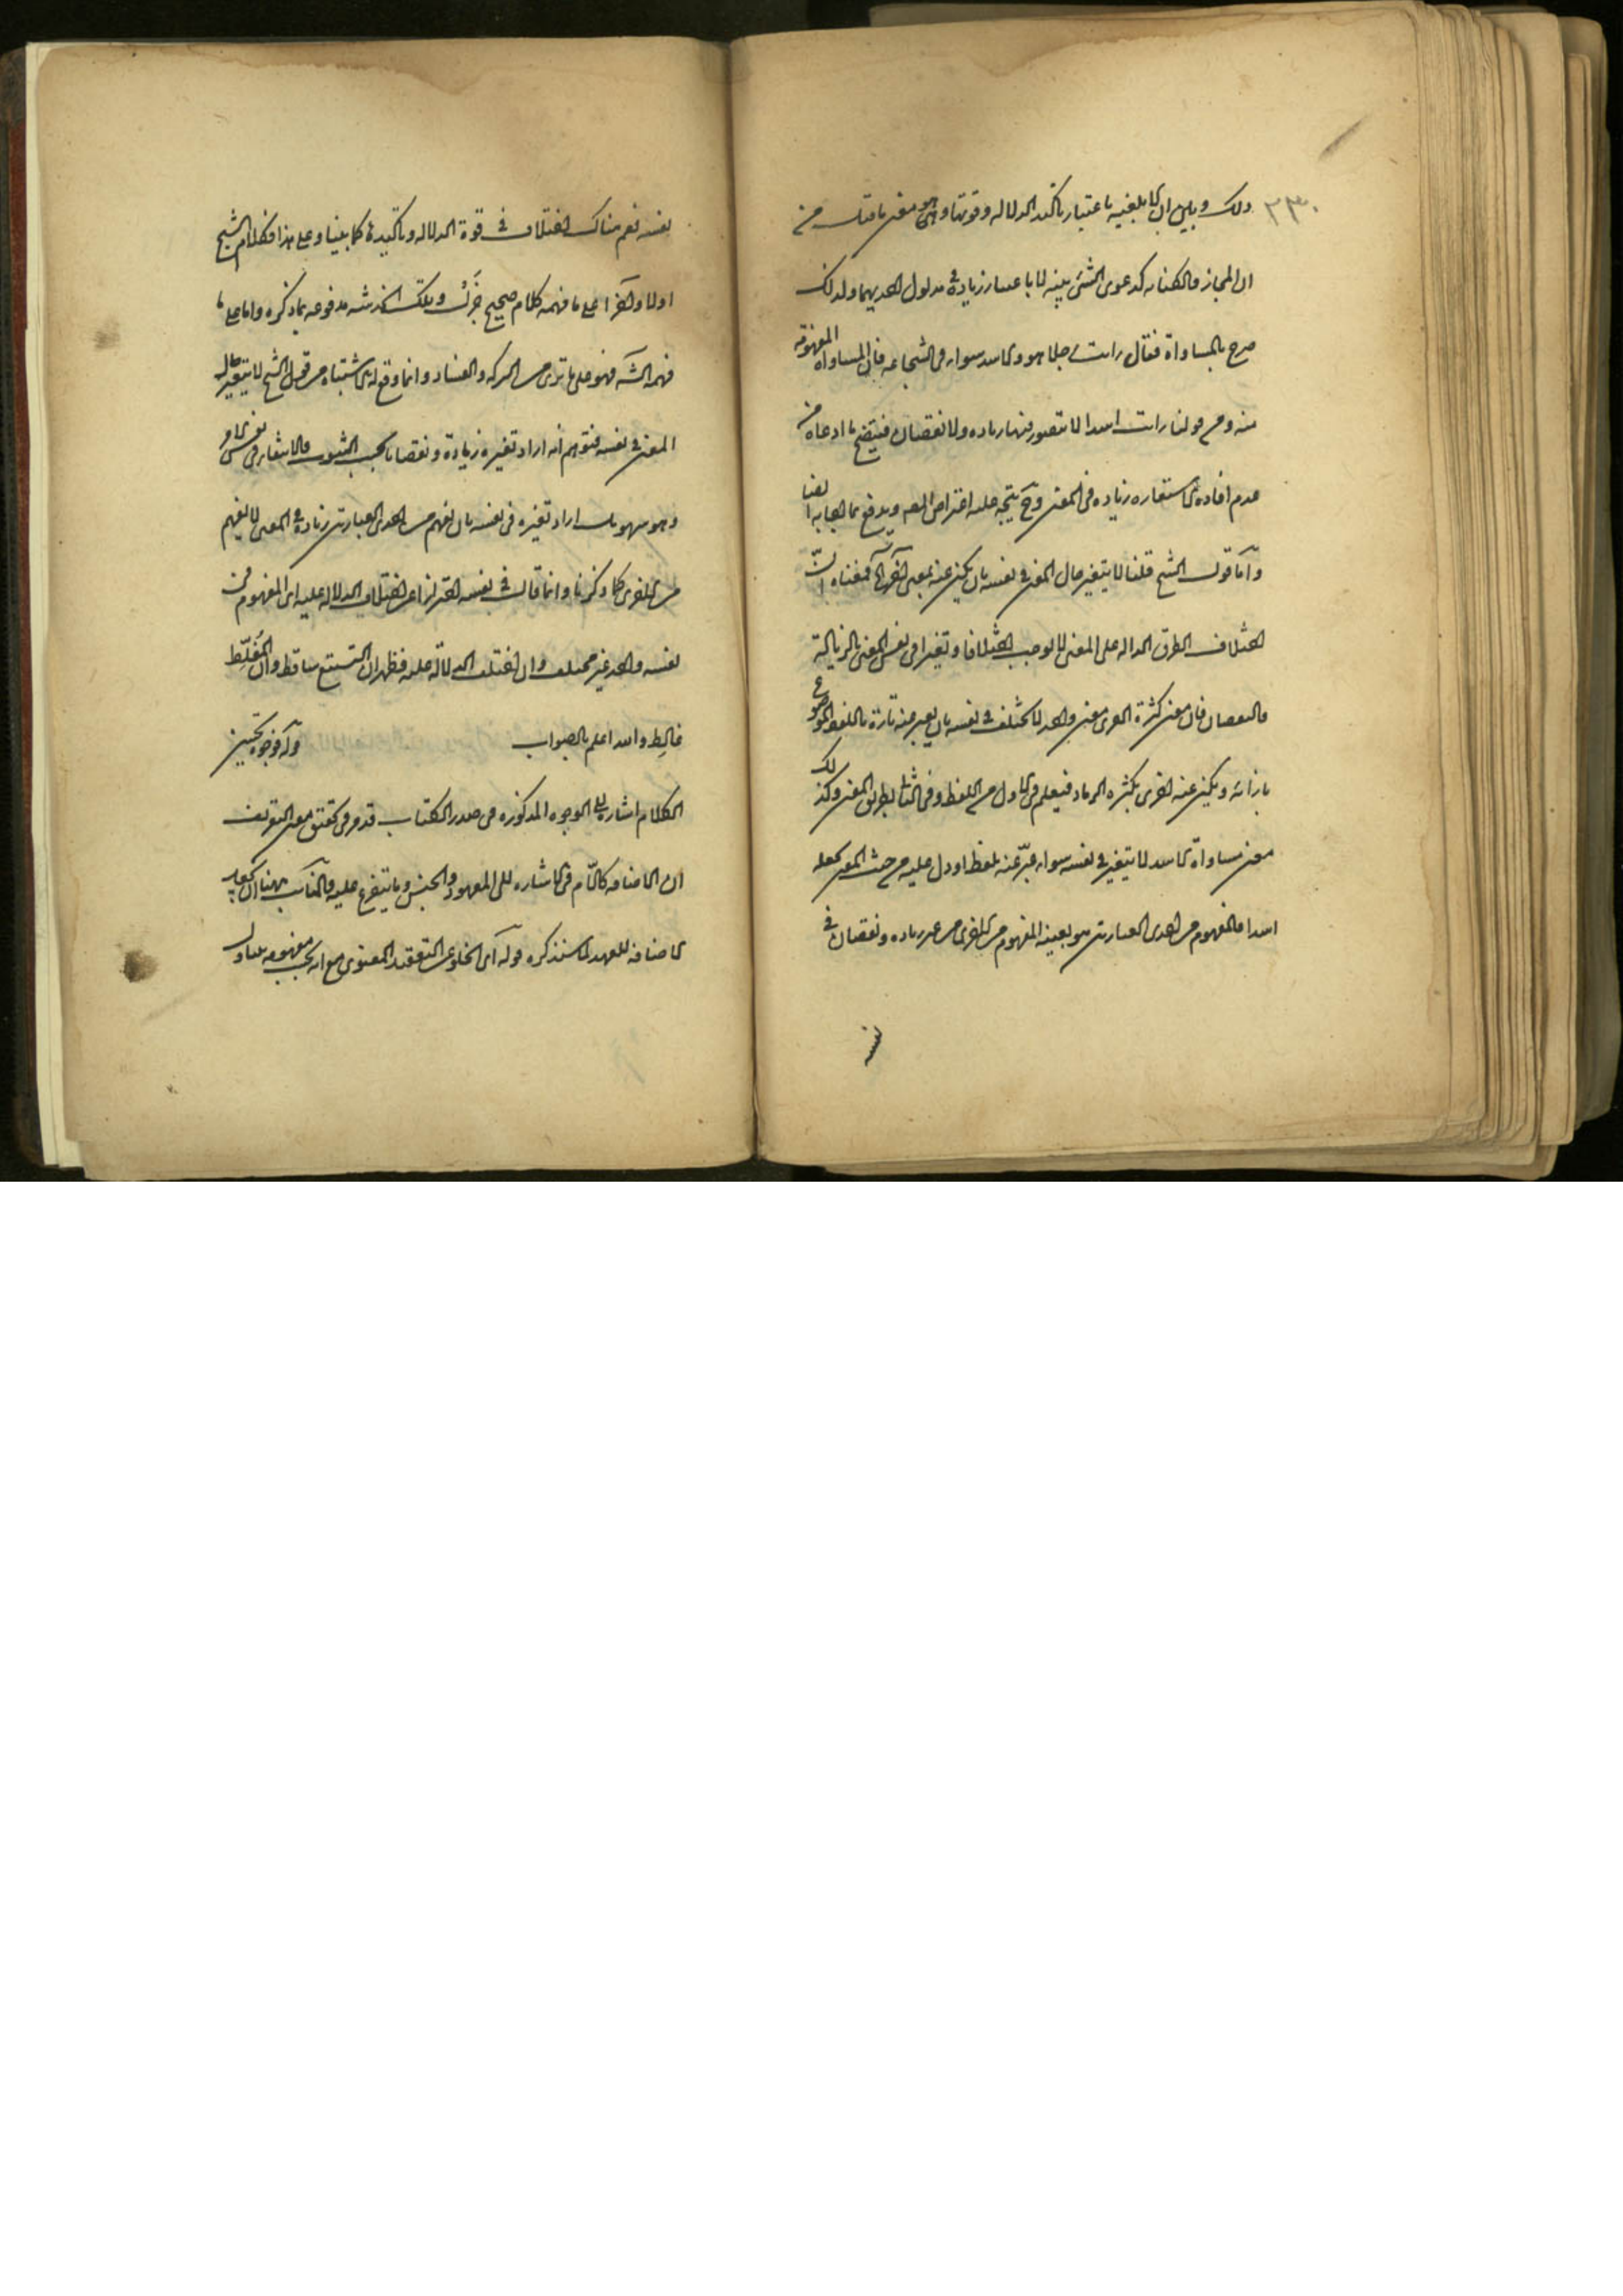 ٢٣٠
ذلك وبين ان الابلغيه باعتبار تاكيد الدلاله وقوتها وهو معنى ما قيل من
ان المجاز والكنايه كدعوى الشئ ببينه لا باعتبار زيادة في مدلول احديهما ولذلك
صرح بالمساواة فقال رايت رجلا هو والاسد سواء في الشجاعه فان المساواة المفهومه
منه ومن قولنا رايت اسدا لا يتصور فيها زياده ولا نقصان فيتضح ما ادعاه من
عدم افادة الاستعاره زياده في المعنى وح يتجه عليه اعتراض المص ويدفع بما اجاب به ايضا
واما قول الشيخ قلنا لا يتغير حال المعنى في نفسه بان يكنى عنه بمعنى آخر الخ فمعناه ان
اختلاف الطرق الداله على المعنى لا يوجب اختلافا وتغيرا في نفس المعنى بالزيادة
والنقصان فان معنى كثرة القرى معنى واحد لا يختلف في نفسه بان يعبر عنه تارة باللفظ الموضوع
بازائه ويكنى عنه اخرى بكثرة الرماد فيعلم في الاول من اللفظ وفي الثاني بطريق المعنى وكذلك
معنى مساواة الاسد لا يتغير في نفسه سواء عبر عنه بلفظ او دل عليه من حيث المعنى بجعله
اسدا فالمفهوم من احدى العبارتين هو بعينه المفهوم من الاخرى من غير زياده ونقصان في
نفسه
نفسه نعم هناك اختلاف في قوة الدلاله وتاكيدها كما بينا وعلى هذا فكلام الشيخ
اولا وآخرا على ما فهمه كلام صحيح جزل وتلك الخدشه مدفوعه بما ذكره واما على ما
فهمه الش فهو على ما ترى من الركه والفساد وانما وقع له الاشتباه من قول الشيخ لا يتغير حال
المعنى في نفسه فتوهم انه اراد تغيره زيادة ونقصانا بحسب الثبوت والانتفاء في نفس الامر
وهو سهو بل اراد تغيره في نفسه بان يفهم من احدى العبارتين زيادة في المعنى لا يفهم
من الاخرى كما ذكرنا وانما قال في نفسه احترازا عن اختلاف الدلاله عليه اى المفهوم في
نفسه واحد غير مختلف وان اختلف الدلالة عليه فظهر ان التشنيع ساقط وان المغلط
غالط والله اعلم بالصواب قوله وجوه تحسين
الكلام اشارة الى الوجوه المذكوره في صدر الكتاب قد مر في تحقيق معنى التعريف
ان الاضافه كاللام في الاشاره الى المعهود والجنس وما يتفرع عليه والمناسب ههنا ان يجعل
الاضافه للعهد لما سنذكره قوله اى الخلو عن التعقيد المعنوى مع انه بحسب مفهومه يتناول